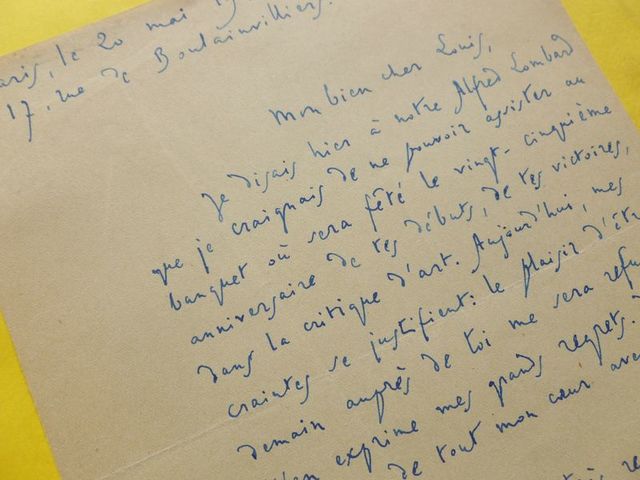 Paris, le 20 mai 19
17, rue de Boulainvilliers.
Mon bien cher Louis,
Je disais hier à notre Alfred Lombard
que je craignais de ne pouvoir assister au
banquet où sera fêté le vingt-cinquième
anniversaire de tes débuts, de tes victoires,
dans la critique d'art. Aujourd'hui, mes
craintes se justifient: le plaisir d'être
demain auprès de toi me sera refu
t'en exprime mes grands regrets.
de tout mon cœur avec